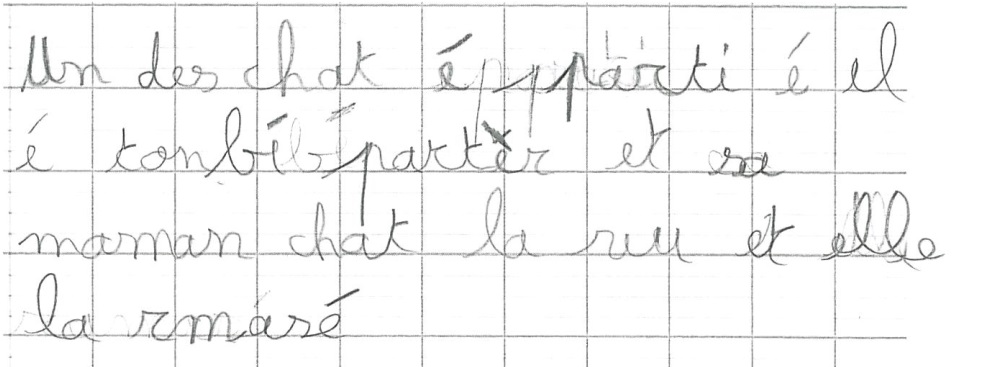 Un des chat é pparti é el
é tonbé parter et sa
maman chat la vu et elle
la rmasé